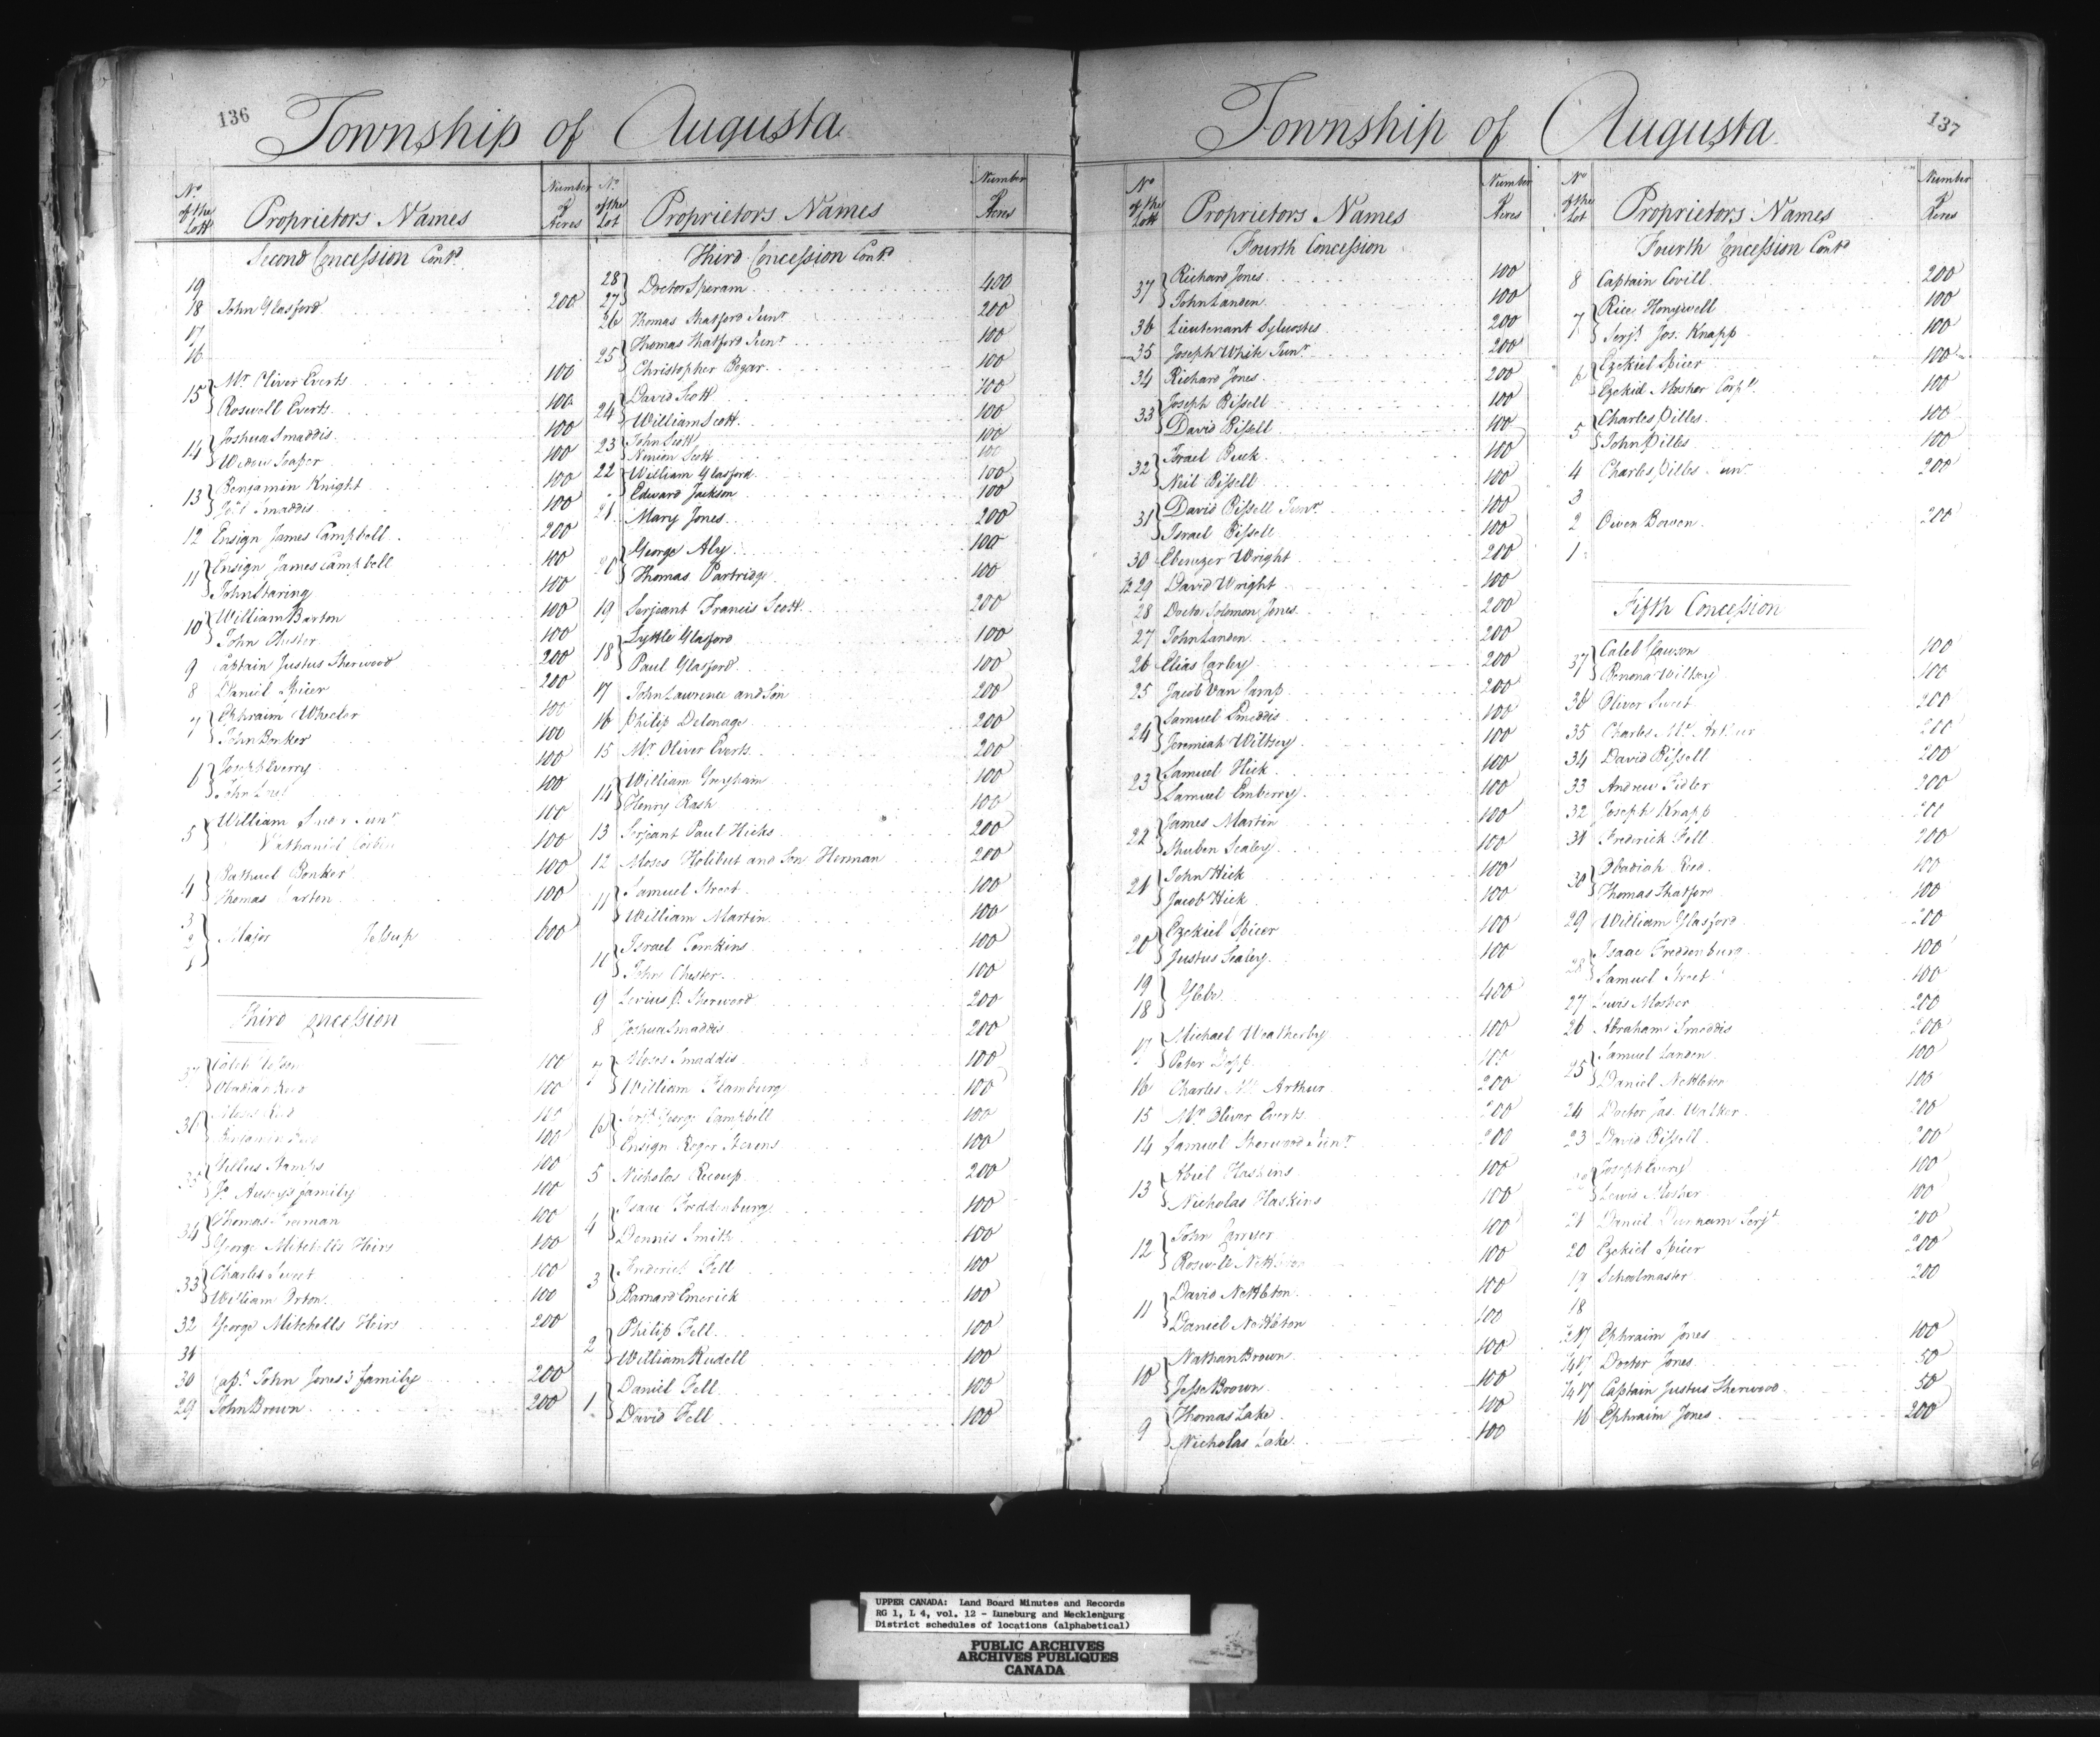 136
Township of Augusta
No of the Lott Proprietors Names Number of Acres
Second Concession Contd
19
18 John Glasford 200
17
16
15 Mr Oliver Everts 100
Roswell Everts 100
14 Joshua Smaddis 100
Widow Soaper 100
13 Benjamin Knight 100
Smaddis 100
12 Ensign James Campbell 200
11 Ensign James Campbell 100
John Staring 100
10 William Barton 100
John Chester 100
9 Captain Justus Sherwood 200
8 Daniel Spicer 200
7 Ephraim Wheeler 100
John Bonker 100
6 Joseph Everry 100
John 100
5 William Junr 100
Nathaniel 100
4 Bathuel Bonker 100
Thomas Barton 100
3
2 Major Jessup 600
1
Third Concession
37 Caleb 100
Obadiah Reed 100
36 Moses Reed 100
Benjamin 100
35 100
family 100
34 Thomas Freeman 100
George Mitchells Heirs 100
33 Charles Sweet 100
William Orton 100
32 George Mitchells Heirs 200
31
30 Capt John Jones's family 200
29 John Brown 200
No of the Lot Proprietors Names Number of Acres
Third Concession Contd
28
27 Doctor Speram 400
26 Thomas Shatford Junr 200
25 Thomas Shatford Junr 100
Christopher Bogar 100
24 David Scott 100
William Scott 100
23 John Scott 100
Ninion Scott 100
22 William Glasford 100
Edward Jackson 100
21 Mary Jones 200
20 George Aly 100
Thomas Partridge 100
19 Serjeant Francis Scott 200
18 Lyttle Glasford 100
Paul Glasford 100
17 John Lawrence and Son 200
16 Philip Delonage 200
15 Mr Oliver Everts 200
14 William Greyham 100
Henry Rash 100
13 Serjeant Paul Hicks 200
12 Moses Holibut and Son Herman 200
11 Samuel Street 100
William Martin 100
10 Israel Tomkins 100
John Chester 100
9 Levius P. Sherwood 200
8 Joshua Smaddis 200
7 Moses Smaddis 100
William Hamburg 100
6 Serjt George Campbell 100
Ensign Roger Stevens 100
5 Nicholas Recoup 200
4 Isaac Freddenburg 100
Dennis Smith 100
3 Frederick Fell 100
Barnard Emerick 100
2 Philip Fell 100
William Rudell 100
1 Daniel Fell 100
David Fell 100
137
Township of Augusta
No of the Lott Proprietors Names Number of Acres
Fourth Concession
37 Richard Jones 100
John Landen 100
36 Lieutenant Sylvestes 200
35 Joseph White Junr 200
34 Richard Jones 200
33 Joseph Bissell 100
David Bissell 100
32 Israel Buck 100
Neil Bissell 100
31 David Bissell Junr 100
Israel Bissell 100
30 Ebenezer Wright 200
1/2 29 David Wright 100
28 Doctor Solomon Jones 200
27 John Landen 200
26 Elias Carley 200
25 Jacob Van Camp 200
24 Samuel Smeddis 100
Jeremiah Wiltsey 100
23 Samuel Hick 100
Samuel Emberry 100
22 James Martin 100
Stuben Sealey 100
21 John Hick 100
Jacob Hick 100
20 Ezekiel Spicer 100
Justus Sealey 100
19
18 Glebe 400
17 Michael Weatherby 100
Peter 100
16 Charles Mc Arthur 200
15 Mr Oliver Everts 200
14 Samuel Sherwood Junr 200
13 Abiel Haskins 100
Nicholas Haskins 100
12 John 100
Roswell 100
11 David Nettleton 100
Daniel Nettleton 100
10 Nathan Brown 100
Jesse Brown 100
9 Thomas Lake 100
Nicholas Lake 100
No of the Lot Proprietors Names Number of Acres
Fourth Concession Contd
8 Captain Covill 200
7 Rice Honeywell 100
Serjt Jos. Knapp 100
6 Ezekiel Spicer 100
Ezekiel Mosher Corpll 100
5 Charles Dilles 100
John Dilles 100
4 Charles Dilles Junr 200
3
2 Owen Bowen 200
1
Fifth Concession
37 Caleb Clawson 100
Benona Wiltsey 100
36 Oliver Sweet 200
35 Charles Mc Arthur 200
34 David Bissell 200
33 Andrew Fidler 200
32 Joseph Knapp 200
31 Frederick Fell 200
30 Obadiah Reed 100
Thomas Shatford 100
29 William Glasford 200
28 Isaac Freddenburg 100
Samuel Street 100
27 Lewis Mosher 200
26 Abraham Smeddis 200
25 Samuel Landen 100
Daniel Nettleton 100
24 Doctor Jas. Walker 200
23 David Bissell 200
22 Joseph Everry 100
Lewis Mosher 100
21 Daniel Dunham Serjt 200
20 Ezekiel Spicer 200
19 Schoolmaster 200
18
1/2 17 Ephraim Jones 100
1/4 17 Doctor Jones 50
1/4 17 Captain Justus Sherwood 50
16 Ephraim Jones 200
UPPER CANADA: Land Board Minutes and Records
RG 1, L 4, vol. 12 - Luneburg and Mecklenburg
District schedules of locations (alphabetical)
PUBLIC ARCHIVES
ARCHIVES PUBLIQUES
CANADA